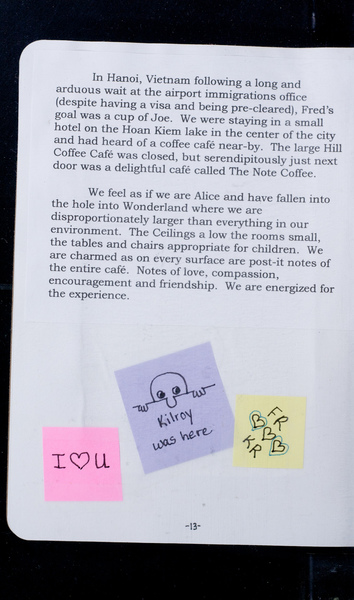 In Hanoi, Vietnam following a long and
arduous wait at the airport immigrations office
(despite having a visa and being pre-cleared), Fred's
goal was a cup of Joe. We were staying in a small
hotel on the Hoan Kiem lake in the center of the city
and had heard of a coffee café near-by. The large Hill
Coffee Café was closed, but serendipitously just next
door was a delightful café called The Note Coffee.
We feel as if we are Alice and have fallen into
the hole into Wonderland where we are
disproportionately larger than everything in our
environment. The Ceilings a low the rooms small,
the tables and chairs appropriate for children. We
are charmed as on every surface are post-it notes of
the entire café. Notes of love, compassion,
encouragement and friendship. We are energized for
the experience.
Kilroy
was here
I ♡ U
FR
B
B
B
KR
-13-